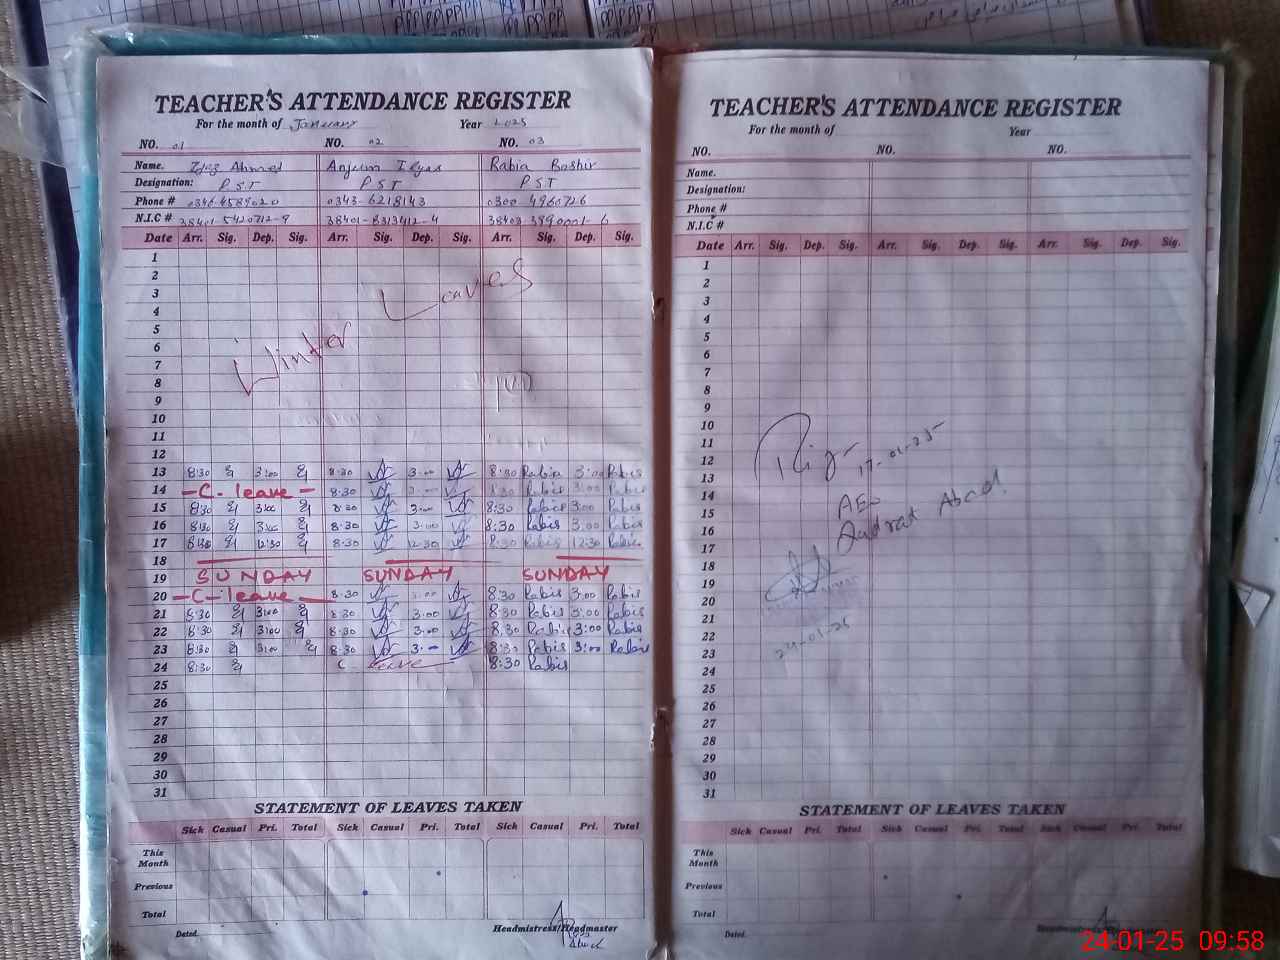 TEACHER'S ATTENDANCE REGISTER
For the month of January Year 2025
NO. 01 NO. 02 NO. 03
Name. Ijaz Ahmed Anjum Ilyas Rabia Bashir
Designation: PST PST PST
Phone # 0346-4589020 0343-6218143 0300 4960726
N.I.C # 38401-5420712-9 38401-8313412-4 38403 3890001-6
Date Arr. Sig. Dep. Sig. Arr. Sig. Dep. Sig. Arr. Sig. Dep. Sig.
1
2
3
4
5
6
7
8
9
10
11
12
Winter Leaves
13 8:30 3:00 8-30 3-00 8:30 Rabia 3:00 Rabis
14 -C. leave- 8-30 8:30 Rabis 3:00 Rabis
15 8:30 8-30 3.00 8:30 Rabis 3:00 Rabis
16 8:30 8-30 3.00 8:30 Rabis 3:00 Rabis
17 8:30 12:30 8-30 12-30 8:30 Rabis 12:30 Rabis
18
19 SUNDAY SUNDAY SUNDAY
20 -C-leave- 8-30 3.00 8:30 Rabis 3:00 Rabis
21 8:30 3:00 8-30 3.00 8:30 Rabis 3:00 Rabis
22 8:30 3:00 8-30 3.00 8:30 Rabis 3:00 Rabis
23 8:30 3:00 8-30 3.- 8:30 Rabis 3:00 Rabis
24 8:30 C- leave 8:30 Rabis
25
26
27
28
29
30
31
STATEMENT OF LEAVES TAKEN
Sick Casual Pri. Total Sick Casual Pri. Total Sick Casual Pri. Total
This Month
Previous
Total
Dated. Headmistress/Headmaster
TEACHER'S ATTENDANCE REGISTER
For the month of Year
NO. NO. NO.
Name.
Designation:
Phone #
N.I.C #
Date Arr. Sig. Dep. Sig. Arr. Sig. Dep. Sig. Arr. Sig. Dep. Sig.
1
2
3
4
5
6
7
8
9
10
11
12
13
14
15
16
17
18
19
20
21
22
23
24
25
26
27
28
29
30
31
17-01-25-
AEO
Qudrat Abad
24-01-25
STATEMENT OF LEAVES TAKEN
Sick Casual Pri. Total Sick Casual Pri. Total Sick Casual Pri. Total
This Month
Previous
Total
Dated.
24-01-25 09:58